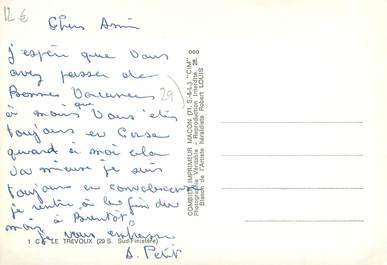 12 €
Chers Amis
J'espère que vous
avez passer de
Bonnes Vacances
à moins que Vous êtes
toujours en Corse
quand à moi cela
va mieux je suis
toujours en convalescence
je rentre à la fin du
mois, à Bientôt,
je vous embrasse
D. Petit
29
1 C LE TREVOUX (29 S. Sud-Finistère)
COMBIER IMPRIMEUR MACON (71. S.-&-L.) "CIM"
Photographie Véritable - Reproduction Interdite
Blason de l'Artiste héraldiste Robert LOUIS